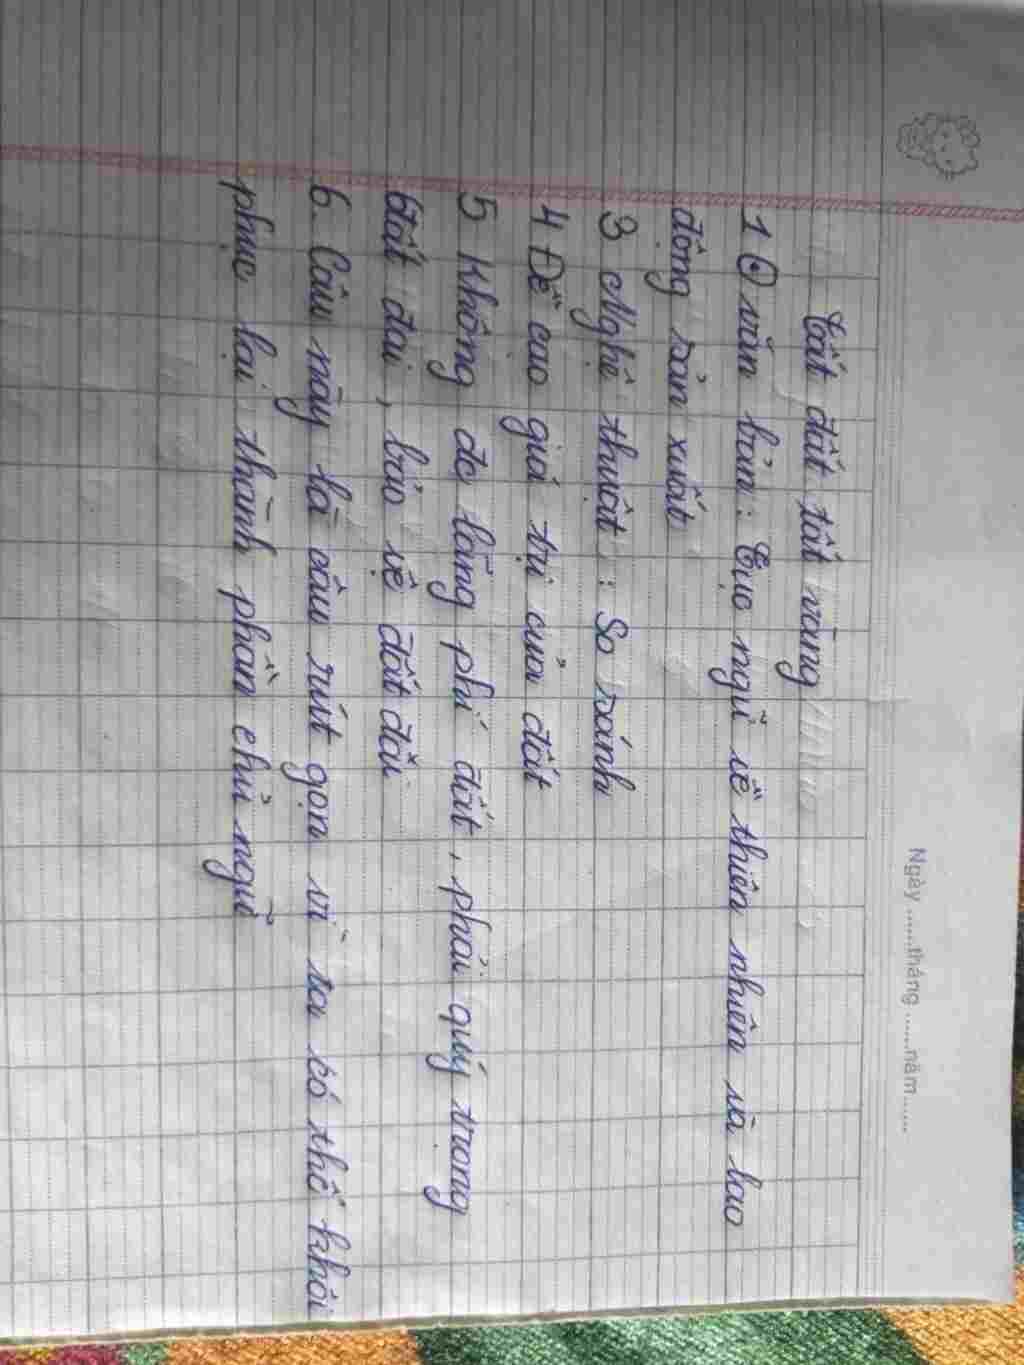 Ngày ...... tháng ...... năm ......
Tất đất tất vàng
1 văn bản : Tục ngữ về thiên nhiên và lao
động sản xuất
3 Nghệ thuật : So sánh
4 Đề cao giá trị của đất
5 Không đc lãng phí đất , phải quý trọng
đất đai , bảo vệ đất đai
6. Câu này là câu rút gọn vì ta có thể khôi
phục lại thành phần chủ ngữ